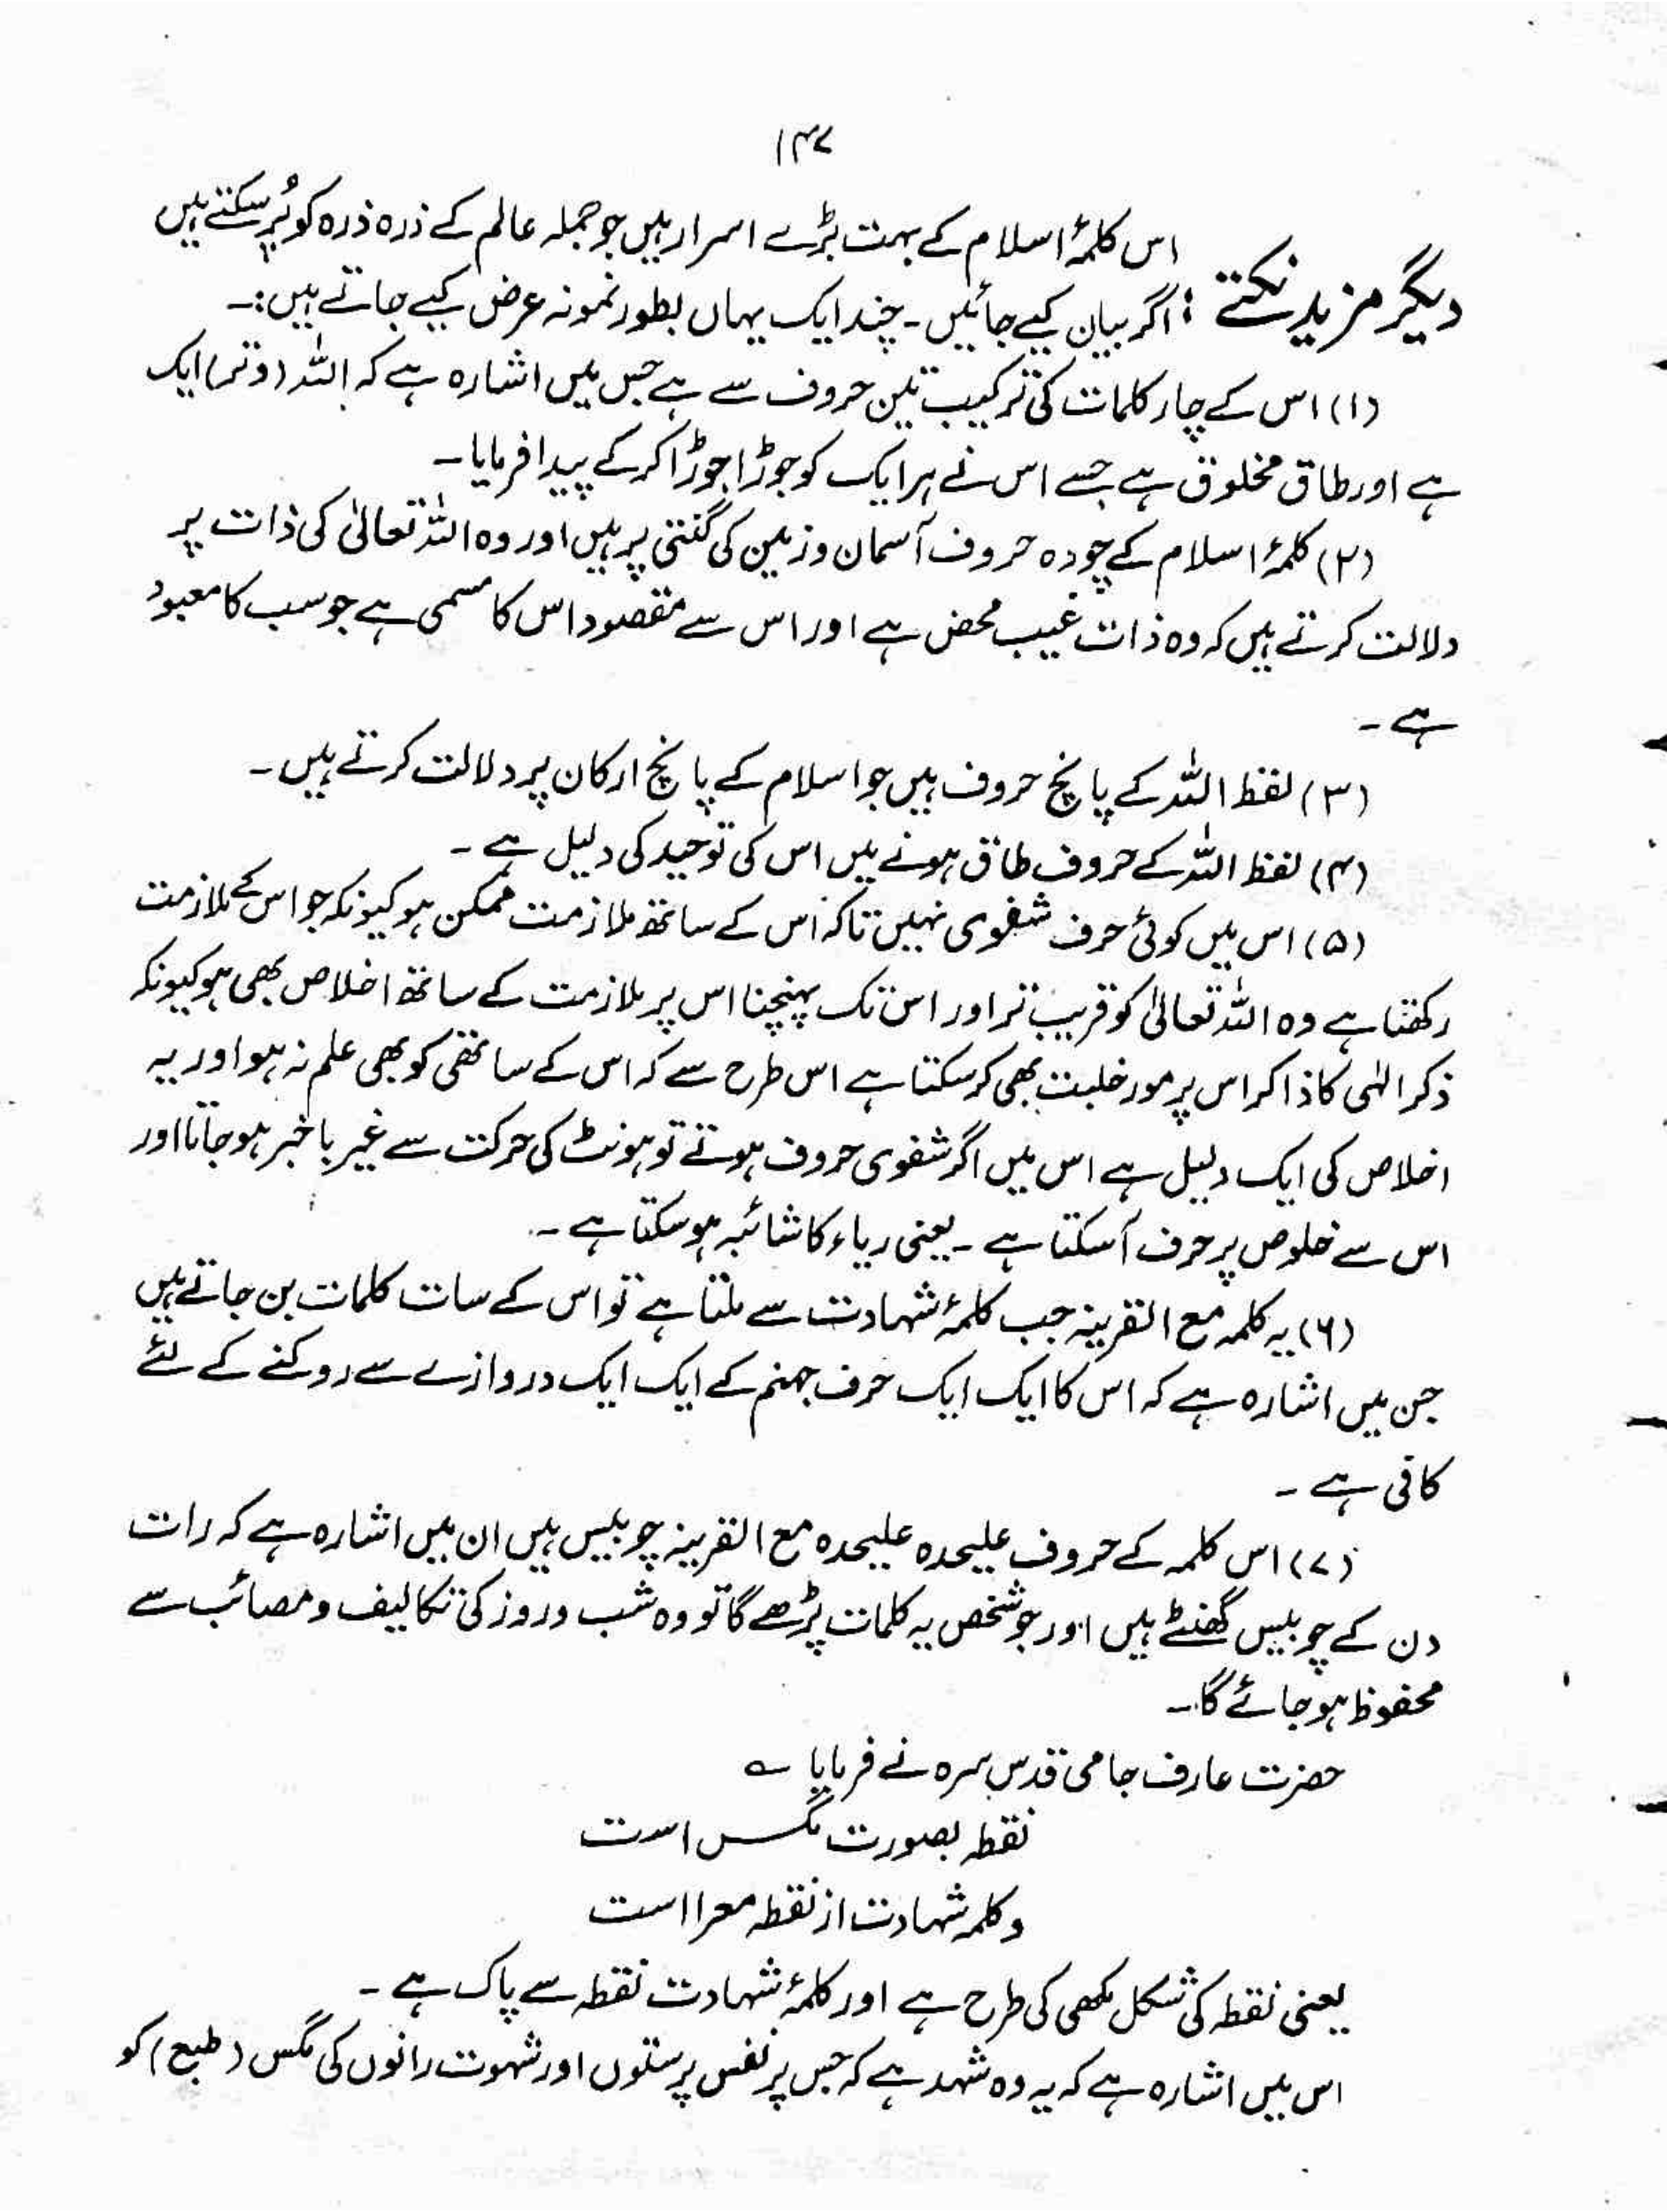 ۱۴۷
اس کلمۂ اسلام کے بہت بڑے اسرار ہیں جو جملہ عالم کے ذرہ ذرہ کو پُر سکتے ہیں
دیگر مزید نکتے : اگر بیان کیے جائیں ۔ چند ایک یہاں بطور نمونہ عرض کیے جاتے ہیں :۔
(۱) اس کے چار کلمات کی ترکیب تین حروف سے ہے جس میں اشارہ ہے کہ اللہ (وتر) ایک
ہے اور طاق مخلوق ہے جسے اس نے ہر ایک کو جوڑا جوڑا کر کے پیدا فرمایا ۔
(۲) کلمۂ اسلام کے چودہ حروف آسمان و زمین کی گنتی پر ہیں اور وہ اللہ تعالیٰ کی ذات پر
دلالت کرتے ہیں کہ وہ ذات غیب محض ہے اور اس سے مقصود اس کا مسمی ہے جو سب کا معبود
ہے ۔
(۳) لفظ اللہ کے پانچ حروف ہیں جو اسلام کے پانچ ارکان پر دلالت کرتے ہیں ۔
(۴) لفظ اللہ کے حروف طاق ہونے میں اس کی توحید کی دلیل ہے ۔
(۵) اس میں کوئی حرف شفوی نہیں تاکہ اس کے ساتھ ملازمت ممکن ہو کیونکہ جو اس کے ملازمت
رکھتا ہے وہ اللہ تعالیٰ کو قریب تر اور اس تک پہنچنا اس پر ملازمت کے ساتھ اخلاص بھی ہو کیونکہ
ذکر الٰہی کا ذاکر اس پر مورخلبت بھی کر سکتا ہے اس طرح سے کہ اس کے ساتھی کو بھی علم نہ ہو اور یہ
اخلاص کی ایک دلیل ہے اس میں اگر شفوی حروف ہوتے تو ہونٹ کی حرکت سے غیر باخبر ہو جاتا اور
اس سے خلوص پر حرف آ سکتا ہے ۔ یعنی ریاء کا شائبہ ہو سکتا ہے ۔
(۶) یہ کلمہ مع القرینہ جب کلمۂ شہادت سے ملتا ہے تو اس کے سات کلمات بن جاتے ہیں
جن میں اشارہ ہے کہ اس کا ایک ایک حرف جہنم کے ایک ایک دروازے سے روکنے کے لئے
کافی ہے ۔
(۷) اس کلمہ کے حروف علیحدہ علیحدہ مع القرینہ چوبیس ہیں ان میں اشارہ ہے کہ رات
دن کے چوبیس گھنٹے ہیں اور جو شخص یہ کلمات پڑھے گا تو وہ شب و روز کی تکالیف و مصائب سے
محفوظ ہو جائے گا ۔
حضرت عارف جامی قدس سرہ نے فرمایا ؎
نقطہ بصورت مگس است
و کلمہ شہادت از نقطہ معرا است
یعنی نقطہ کی شکل مکھی کی طرح ہے اور کلمۂ شہادت نقطہ سے پاک ہے ۔
اس میں اشارہ ہے کہ یہ وہ شہد ہے کہ جس پر نفس پرستوں اور شہوت رانوں کی مگس (طبع) کو